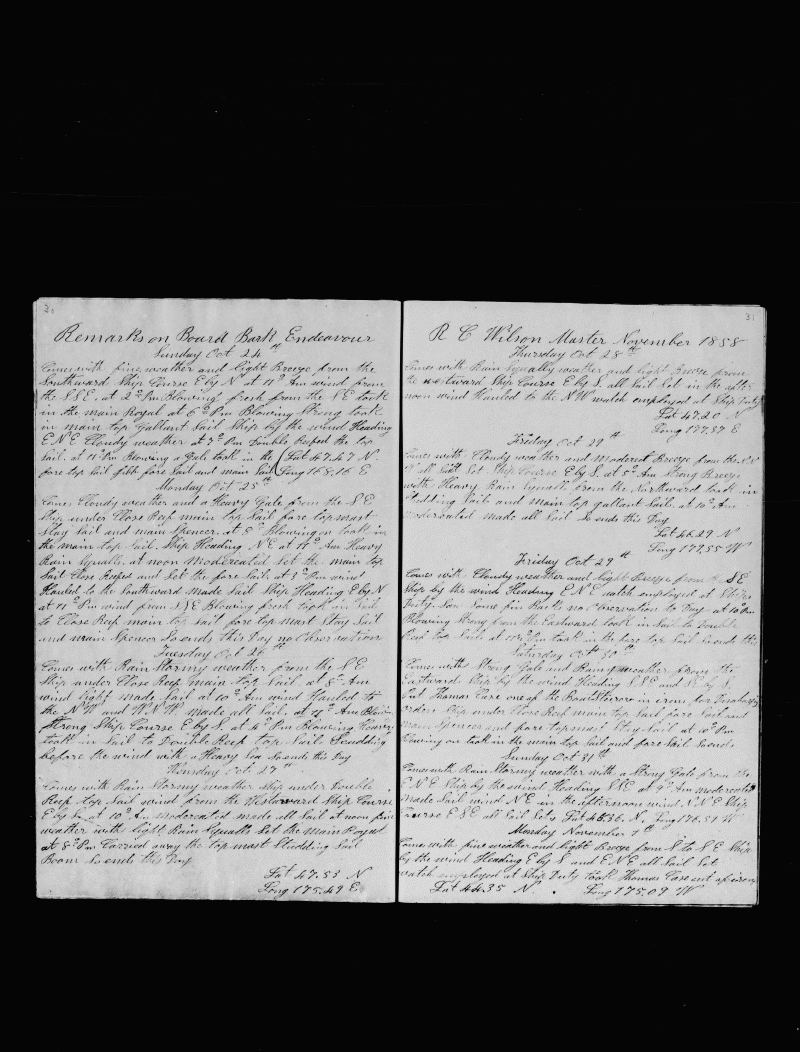 30
Remarks on Board Bark Endeavour
Sunday Oct 24th
Comes with fine weather and light Breeze from the
Southward Ship Course E by N at 11 o Am wind from
the S.S.E. at 2 o Pm Blowing fresh from the S E took
in the main Royal at 6 o Pm Blowing Strong took
in main top Gallant Sail Ship by the wind Heading
E.N.E. Cloudy weather at 9 o Pm Double Reefed the top
Sail. at 11 o Pm Blowing a Gale took in the Lat 47.47 N
fore top sail Jibb fore Sail and main Sail Long 168.16 E
Monday Oct 25th
Comes Cloudy weather and a Heavy Gale from the S E
Ship under Close Reef main top Sail fore topmast
Stay Sail and main Spencer. at 8 o Blowing on took in
the main top Sail. Ship Heading N E at 11 o Am Heavy
Rain Squalls. at noon Modercated Set the main top
Sail Close Reefed and Set the fore Sail. at 3 o Pm wind
Hauled to the Southward made Sail Ship Heading E by N
at 11 o Pm wind from S.S.E Blowing fresh took in Sail
to Close Reef main top Sail fore top mast Stay Sail
and main Spencer So ends this Day no Observation
Tuesday Oct 26th
Comes with Rain Stormy weather from the S E
Ship under Close Reef main top Sail at 8 o Am
wind light made Sail at 10 o Am wind Hauled to
the N W and W.N.W. made all Sail. at 11 o Am Blowing
Strong Ship Course E by S. at 4 o Pm Blowing Heavy
took in Sail to Double Reef top Sail Scudding
before the wind with a Heavy Sea So ends this Day
Wensday Oct 27th
Comes with Rain Stormy weather Ship under Double
Reef top Sail wind from the Westarward Ship Course
E by S. at 10 o A. modercated made all Sail at noon fine
weather with light Rain Squalls Set the main Royal
at 8 o Pm Carried away the top mast Studding Sail
Boom So ends this Day
Lat 47.53 N
Long 175.49 E
31
R C Wilson Master November 1858
Thursday Oct 28th
Comes with Rain Squally weather and light Breeze from
the westward Ship Course E by S. all Sail Set in the after
noon wind Hauled to the N W watch employed at Ship Duty
Lat 47.20 N
Long 177.57 E
Friday Oct 29th
Comes with Cloudy weather and Moderced Breeze from the
all Sail Set Ship Course E by S. at 5 o Am Strong Breeze
with Heavy Rain Squall from the Northward took in
Studding Sail and main top gallant Sail. at 10 o Am
modercated made all Sail So ends this Day
Lat 46.29 N
Long 177.55 W
Friday Oct 29th
Comes with Cloudy weather and light Breeze from the S E
Ship by the wind Heading E N E watch employed at Ships
Duty. no Observation to Day. at 10 o Pm
Blowing Strong from the Eastward took in Sail to Double
Reef top Sail. at Pm took in the fore top Sail So ends this
Saturday Oct 30th
Comes with Strong Gale and Rainy weather from the
Eastward Ship by the wind Heading S S E and S. by S.
Put Thomas Case one of the in iron for Disobaying
orders Ship under Close Reef main top Sail fore Sail and
main Spencer and fore top mast Stay Sail at 10 o Pm
Blowing on took in the main top Sail and fore Sail So ends
Sunday Oct 31th
Comes with Rain Stormy weather with a Strong Gale from the
E N E Ship by the wind Heading S S E at 9 o Am modercated
made Sail wind N E in the afternoon wind N.N.E Ship
Course E S E all Sail Set Lat 45.36. N. Long 176.51 W
Monday November 1th
Comes with fine weather and light Breeze from S to S E Ship
by the wind Heading E by S. and E.N E. all Sail Set
watch employed at Ship Duty took Thomas Case out of iron
Lat 44.35 N. Long 175.09 W